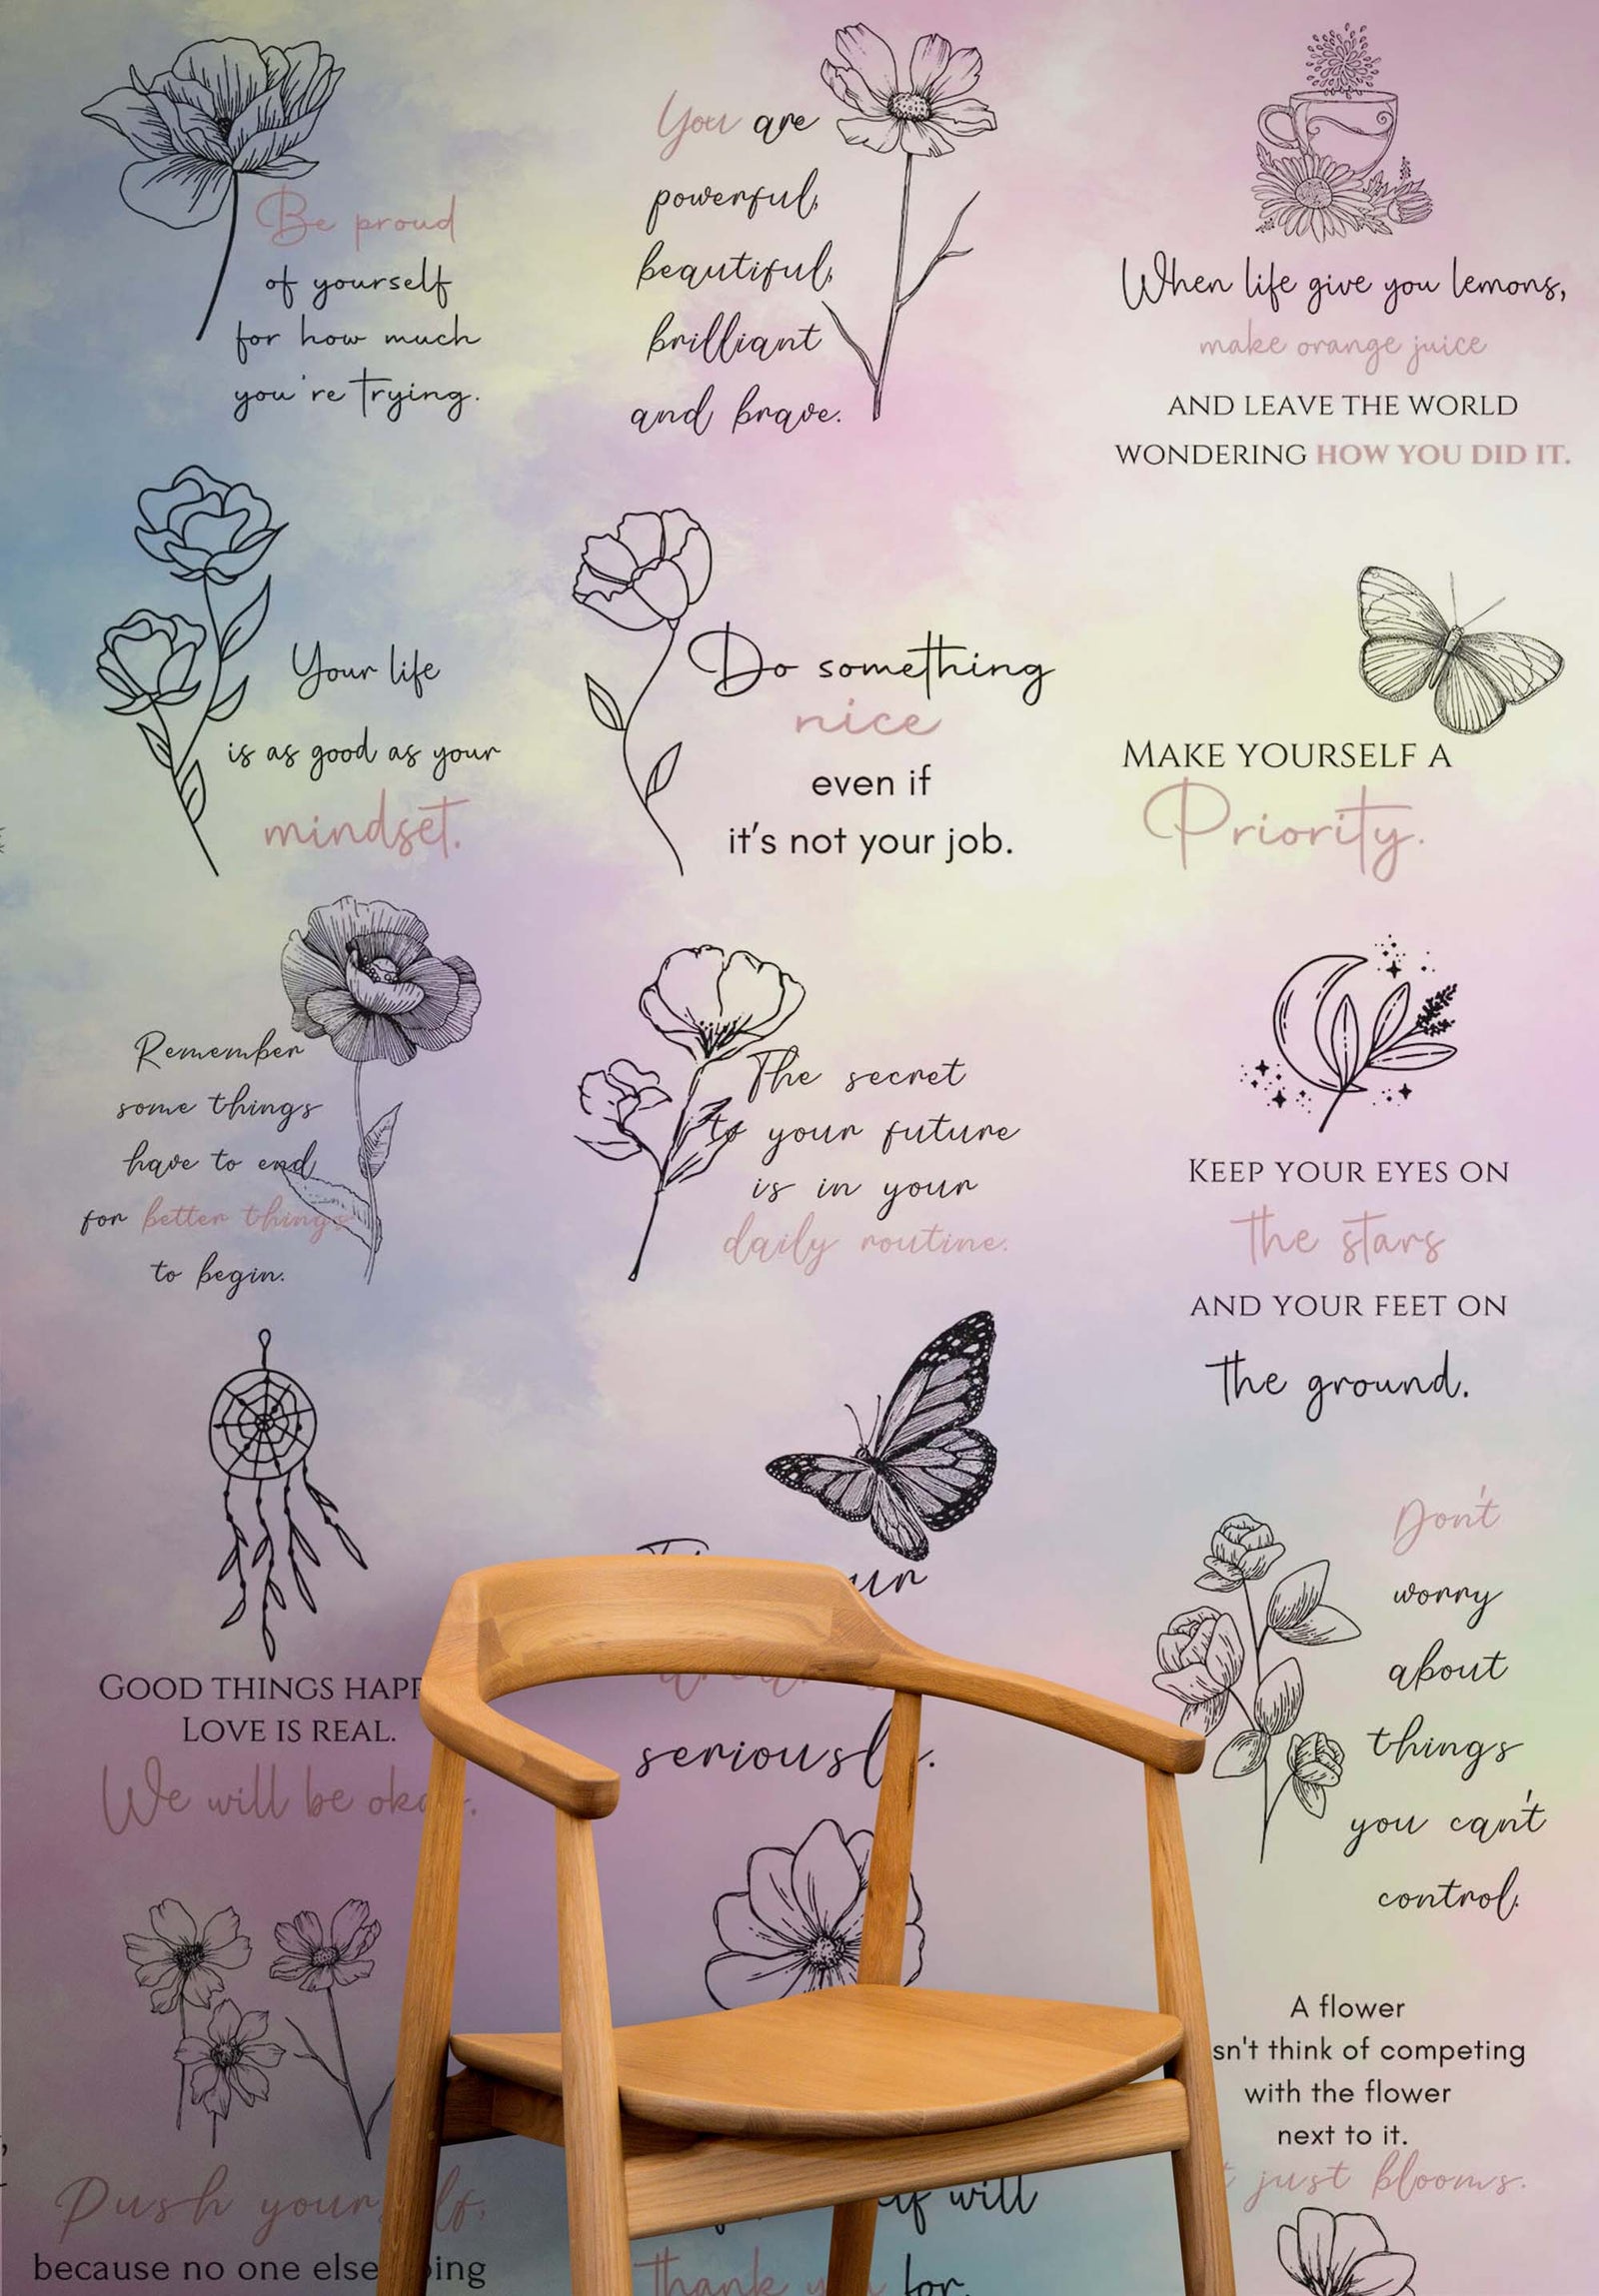 Be proud
of yourself
for how much
you're trying.
You are
powerful,
beautiful,
brilliant
and brave.
When life give you lemons,
make orange juice
AND LEAVE THE WORLD
WONDERING HOW YOU DID IT.
Your life
is as good as your
mindset.
Do something
nice
even if
it's not your job.
MAKE YOURSELF A
Priority.
Remember
some things
have to end
for better things
to begin.
The secret
to your future
is in your
daily routine.
KEEP YOUR EYES ON
the stars
AND YOUR FEET ON
the ground.
GOOD THINGS
LOVE IS REAL.
We will be
seriously.
Don't
worry
about
things
you can't
control.
Push
because no one else
will
thank
for.
A flower
think of competing
with the flower
next to it.
just blooms.